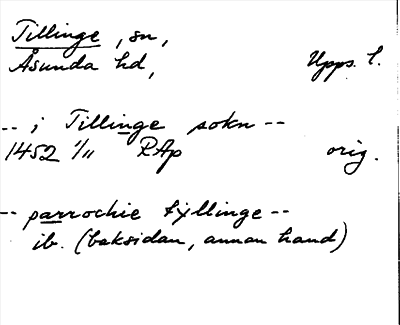 Tillinge, sn,
Åsunda hd, Upps. l.
-- i Tillinge sokn --
1452 1/11 RAp orig.
-- parrochie tyllinge --
ib. (baksidan, annan hand)